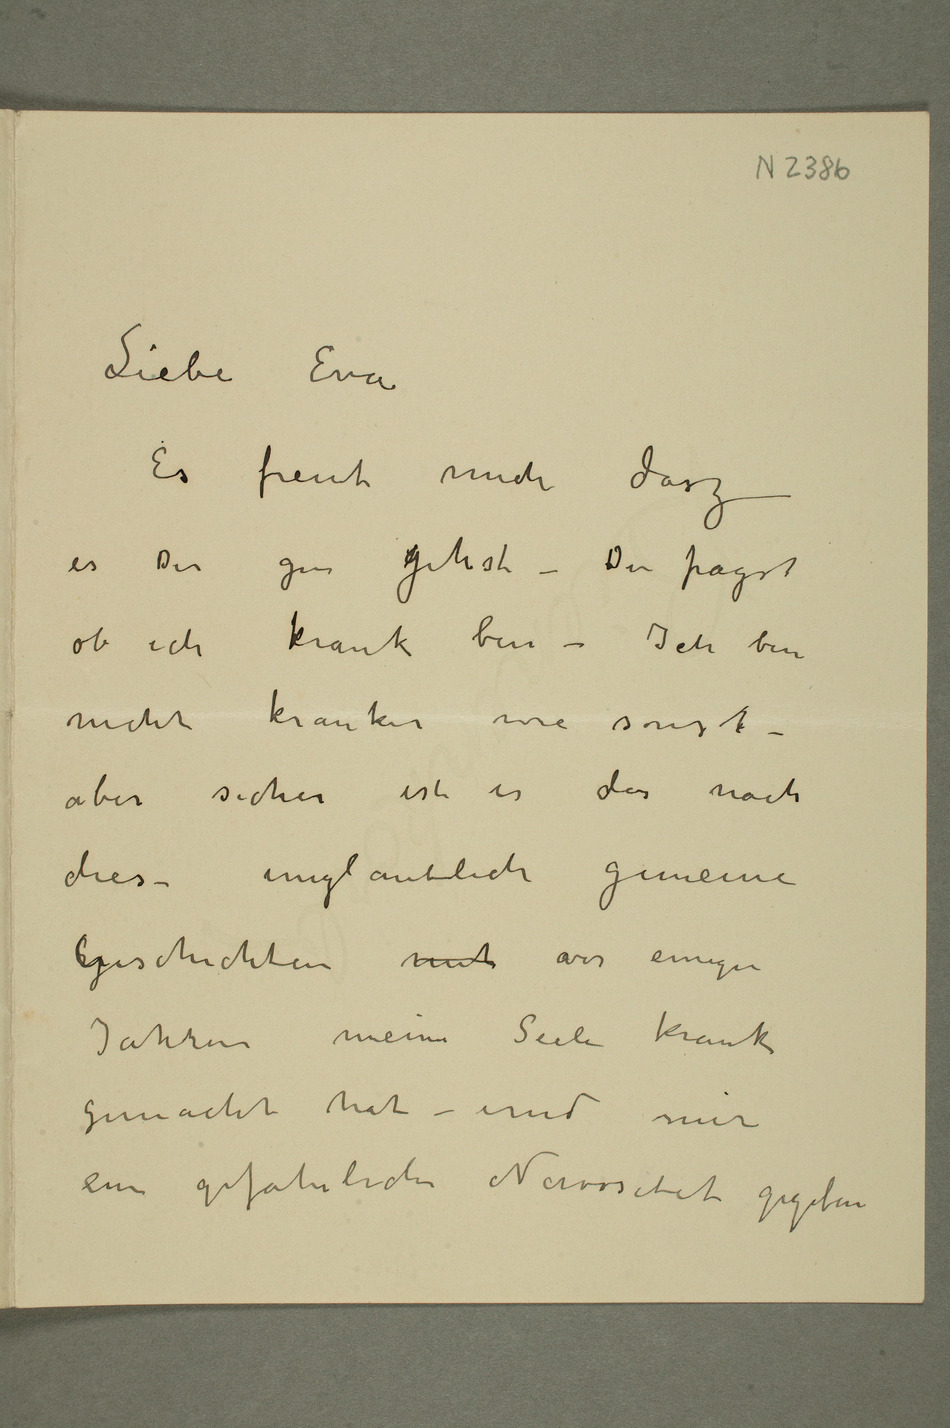 N 2386
Liebe Eva
Es freut mich dasz
es Dir gut gehst – Du fragst
ob ich krank bin – Ich bin
nicht kranker wie sonst –
aber sicher ist es das nach
dies – unglaublich gemeine
Geschichten mit vor einige
Jahren meine Seele krank
gemacht hat – und mir
eine gefahrliche Nervositet gegeben